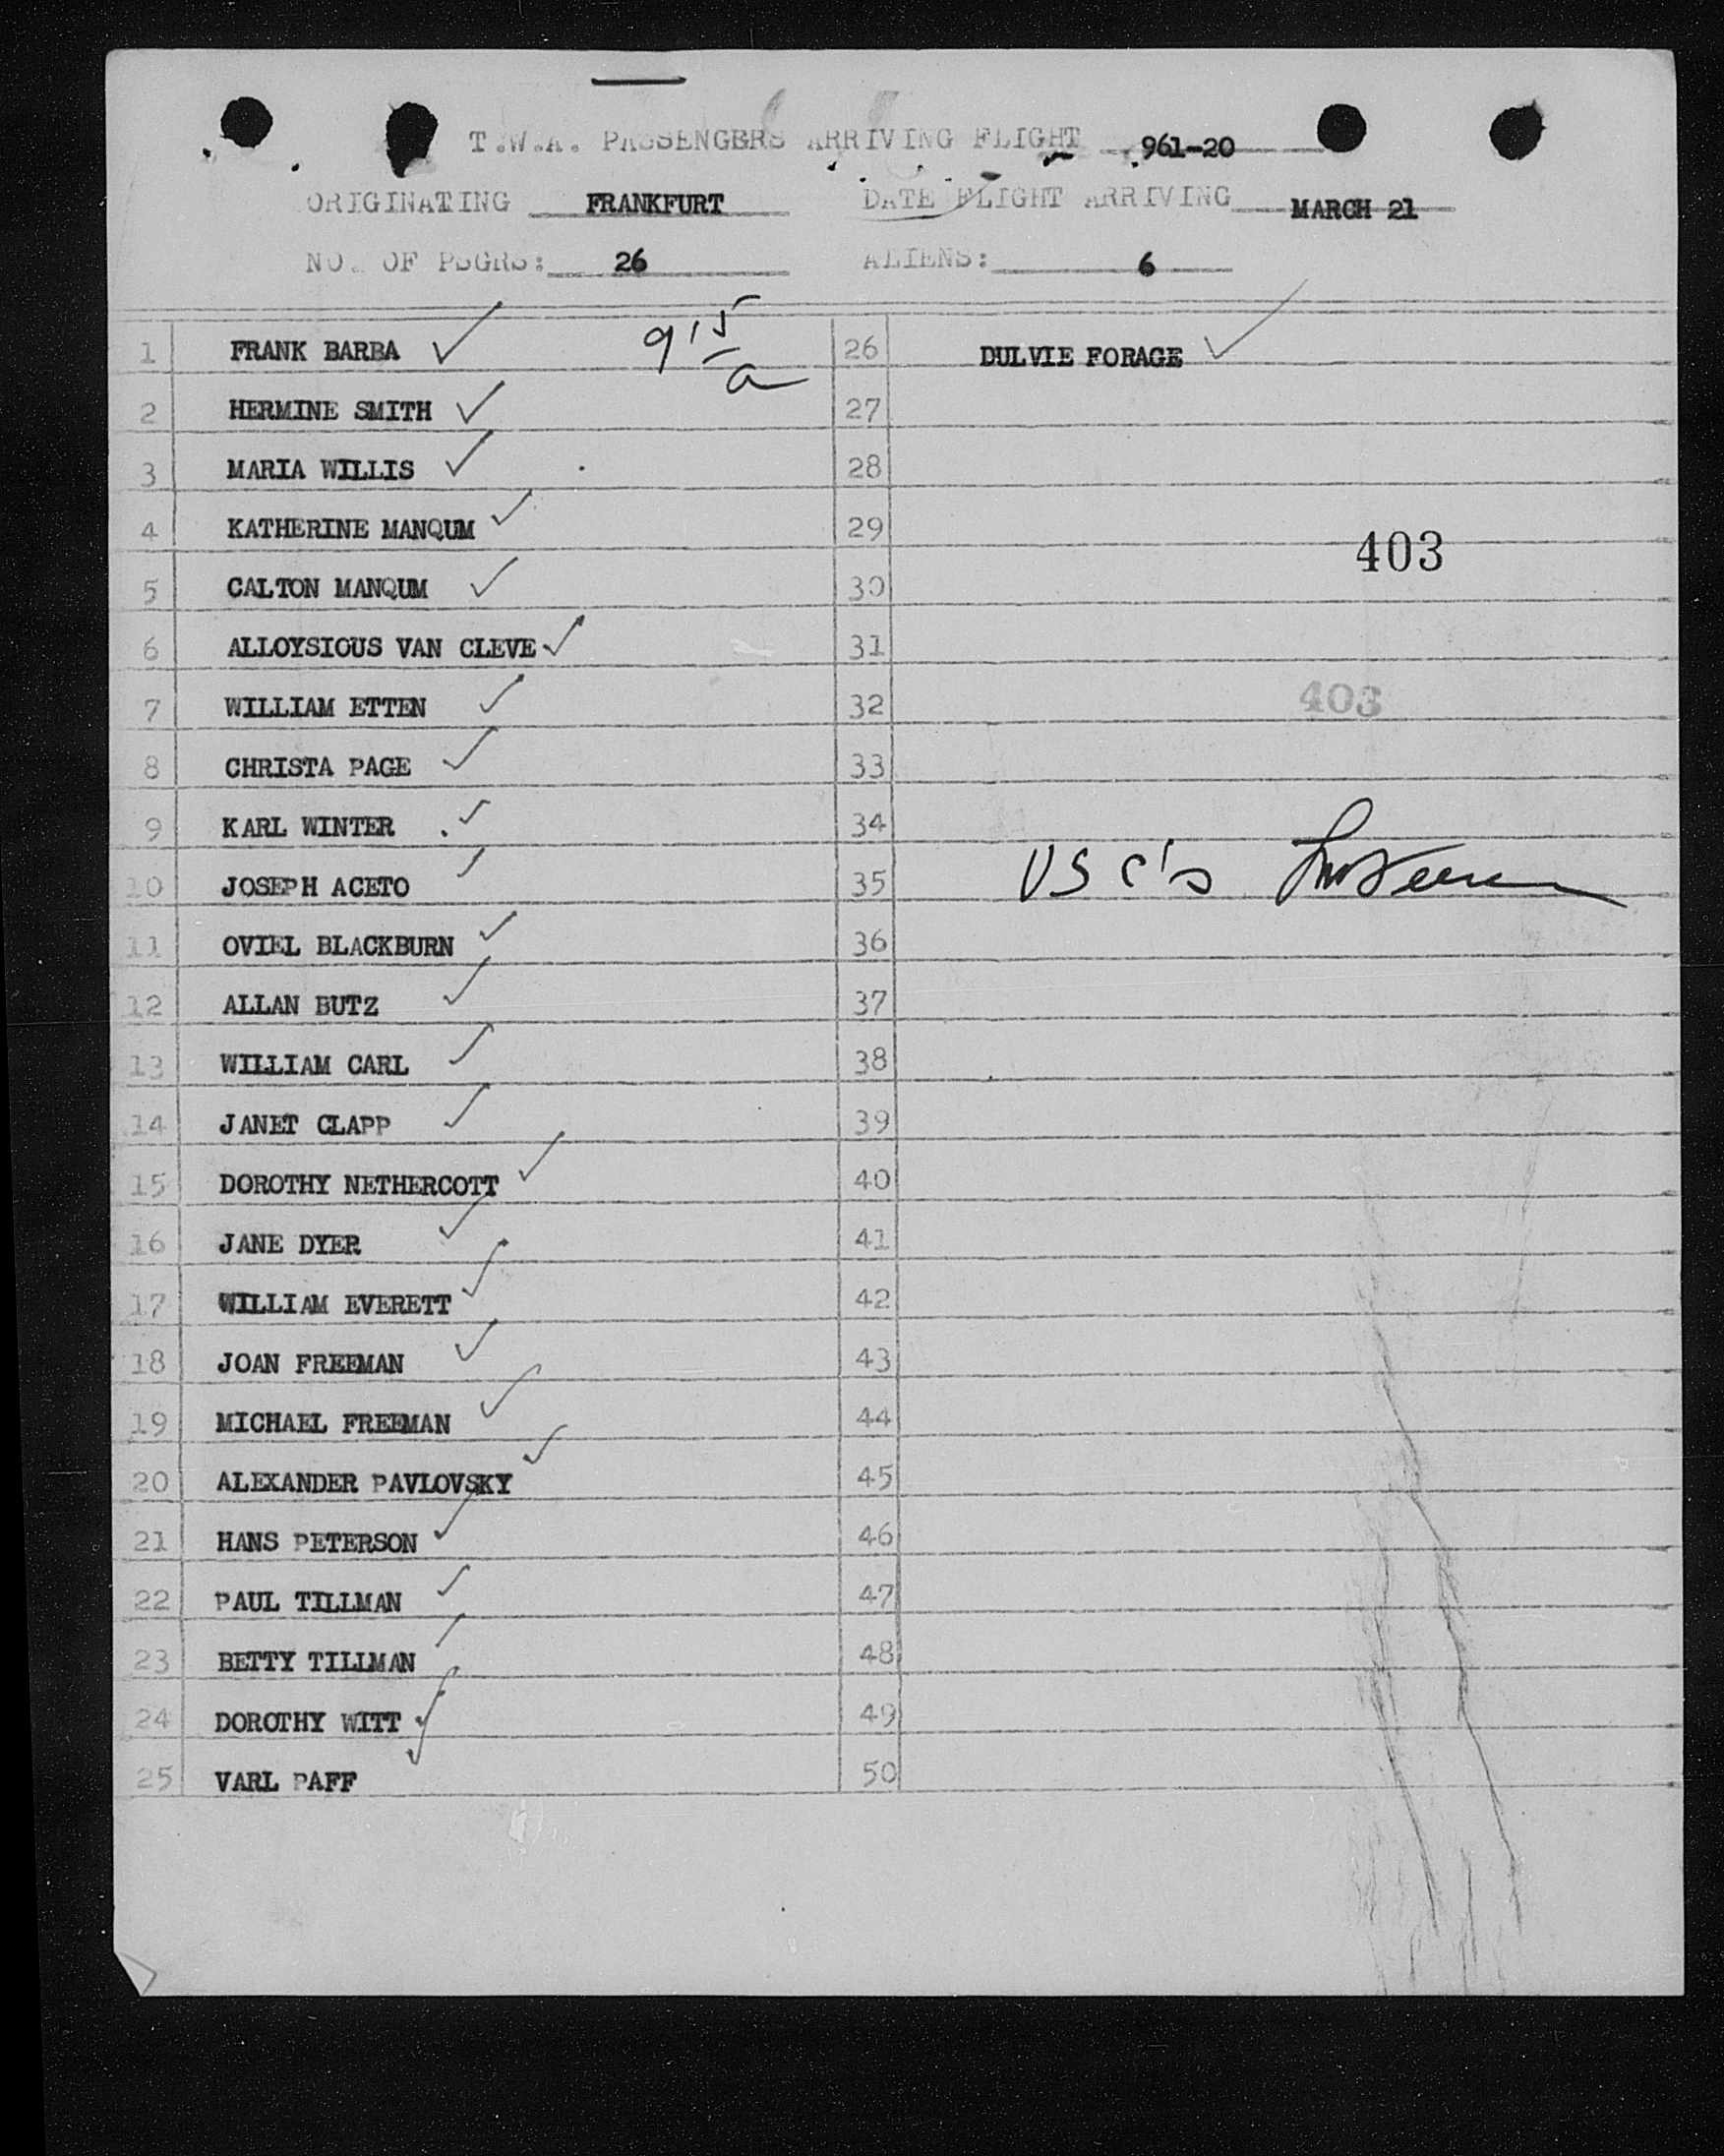 T.W.A. PASSENGERS ARRIVING FLIGHT 961-20
ORIGINATING FRANKFURT DATE FLIGHT ARRIVING MARCH 21
NO. OF PSGRS: 26 ALIENS: 6
9 15/a
1 FRANK BARBA 26 DULVIE FORAGE
2 HERMINE SMITH 27
3 MARIA WILLIS 28
4 KATHERINE MANQUM 29
403
5 CALTON MANQUM 30
6 ALLOYSIOUS VAN CLEVE 31
7 WILLIAM ETTEN 32 403
8 CHRISTA PAGE 33
9 KARL WINTER 34
10 JOSEPH ACETO 35 USC's
11 OVIEL BLACKBURN 36
12 ALLAN BUTZ 37
13 WILLIAM CARL 38
14 JANET CLAPP 39
15 DOROTHY NETHERCOTT 40
16 JANE DYER 41
17 WILLIAM EVERETT 42
18 JOAN FREEMAN 43
19 MICHAEL FREEMAN 44
20 ALEXANDER PAVLOVSKY 45
21 HANS PETERSON 46
22 PAUL TILLMAN 47
23 BETTY TILLMAN 48
24 DOROTHY WITT 49
25 VARL PAFF 50